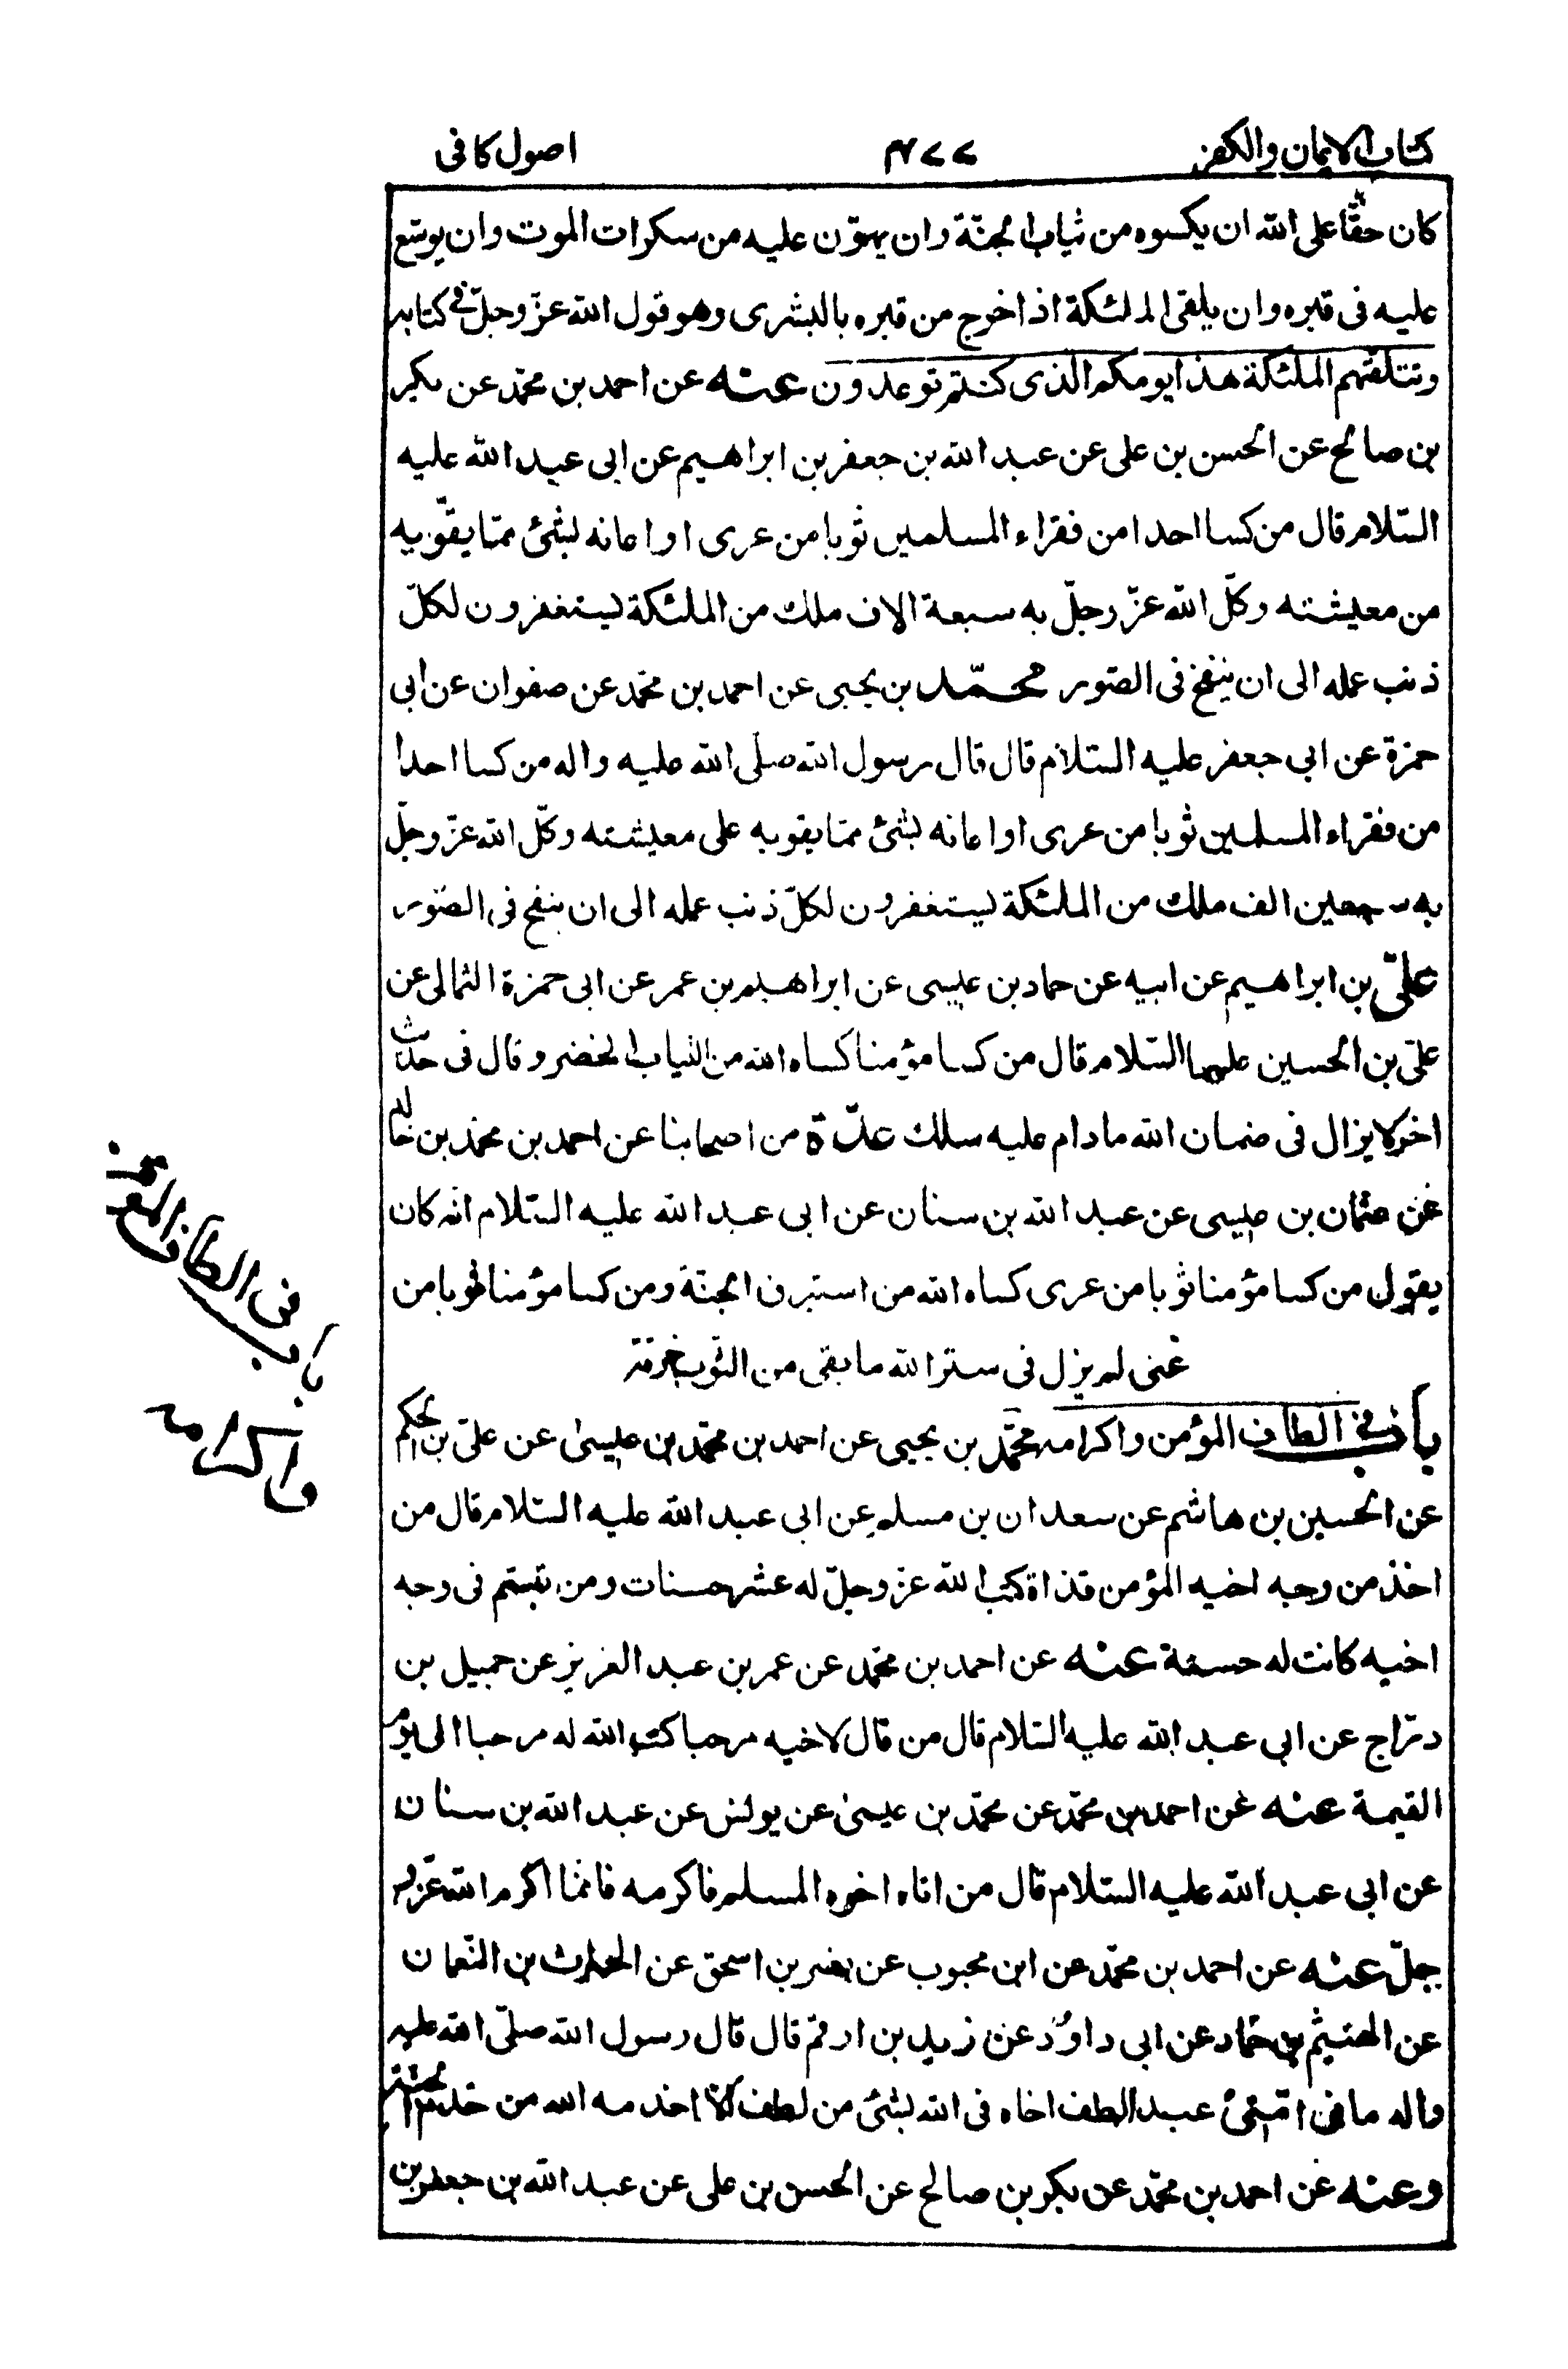 كتاب الايمان والكفر ٤٧٧ اصول كافى
كان حقّا على الله ان يكسوه من ثياب الجنّة وان يهوّن عليه من سكرات الموت وان يوسّع
عليه فى قبره وان يلقى الملئكة اذا خرج من قبره بالبشرى وهو قول الله عزّ وجلّ فى كتابه
وتتلقّيهم الملئكة هذا يومكم الذى كنتم توعدون عنه عن احمد بن محمّد عن بكر
بن صالح عن الحسن بن على عن عبد الله بن جعفر بن ابراهيم عن ابى عبد الله عليه
السّلام قال من كسا احدا من فقراء المسلمين ثوبا من عرى او اعانه بشئ ممّا يقوّيه
من معيشته وكّل الله عزّ وجلّ به سبعة الاف ملك من الملئكة يستغفرون لكلّ
ذنب عمله الى ان ينفخ فى الصّور محمّد بن يحيى عن احمد بن محمّد عن صفوان عن ابى
حمزة عن ابى جعفر عليه السّلام قال قال رسول الله صلّى الله عليه واله من كسا احدا
من فقراء المسلمين ثوبا من عرى او اعانه بشئ ممّا يقويه على معيشته وكّل الله عزّ وجلّ
به سبعين الف ملك من الملئكة يستغفرون لكلّ ذنب عمله الى ان ينفخ فى الصّور
علىّ بن ابراهيم عن ابيه عن حماد بن عيسى عن ابراهيم بن عمر عن ابى حمزة الثمالى عن
علىّ بن الحسين عليهما السّلام قال من كسا مؤمنا كساه الله من الثياب الخضر وقال فى حديث
اخر لا يزال فى ضمان الله ما دام عليه سلك عدّة من اصحابنا عن احمد بن محمّد بن خالد
عن عثمان بن عيسى عن عبد الله بن سنان عن ابى عبد الله عليه السّلام انّه كان
يقول من كسا مؤمنا ثوبا من عرى كساه الله من استبرق الجنّة ومن كسا مؤمنا ثوبا من
غنى لم يزل فى ستر الله ما بقى من الثّوب خرقة
باب فى الطاف المؤمن واكرامه محمّد بن يحيى عن احمد بن محمّد بن عيسى عن علىّ بن الحكم
عن الحسين بن هاشم عن سعدان بن مسلم عن ابى عبد الله عليه السّلام قال من
اخذ من وجه اخيه المؤمن قذاة كتب الله عزّ وجلّ له عشر حسنات ومن تبسّم فى وجه
اخيه كانت له حسنة عنه عن احمد بن محمّد عن عمر بن عبد العزيز عن جميل بن
درّاج عن ابى عبد الله عليه السّلام قال من قال لاخيه مرحبا كتب الله له مرحبا الى يوم
القيمة عنه عن احمد بن محمّد عن محمّد بن عيسى عن يونس عن عبد الله بن سنان
عن ابى عبد الله عليه السّلام قال من اتاه اخوه المسلم فاكرمه فانّما اكرم الله عزّ و
جلّ عنه عن احمد بن محمّد عن ابن محبوب عن نصر بن اسحق عن الحارث بن النّعمان
عن الهيثم بن حمّاد عن ابى داوٗد عن زيد بن ارقم قال قال رسول الله صلّى الله عليه
واله ما فى امّتى عبد الطف اخاه فى الله بشئ من لطف الّا اخدمه الله من خدم الجنّة
وعنه عن احمد بن محمّد عن بكر بن صالح عن الحسن بن على عن عبد الله بن جعفر بن
باب فى الطاف المؤمن
واكرامه